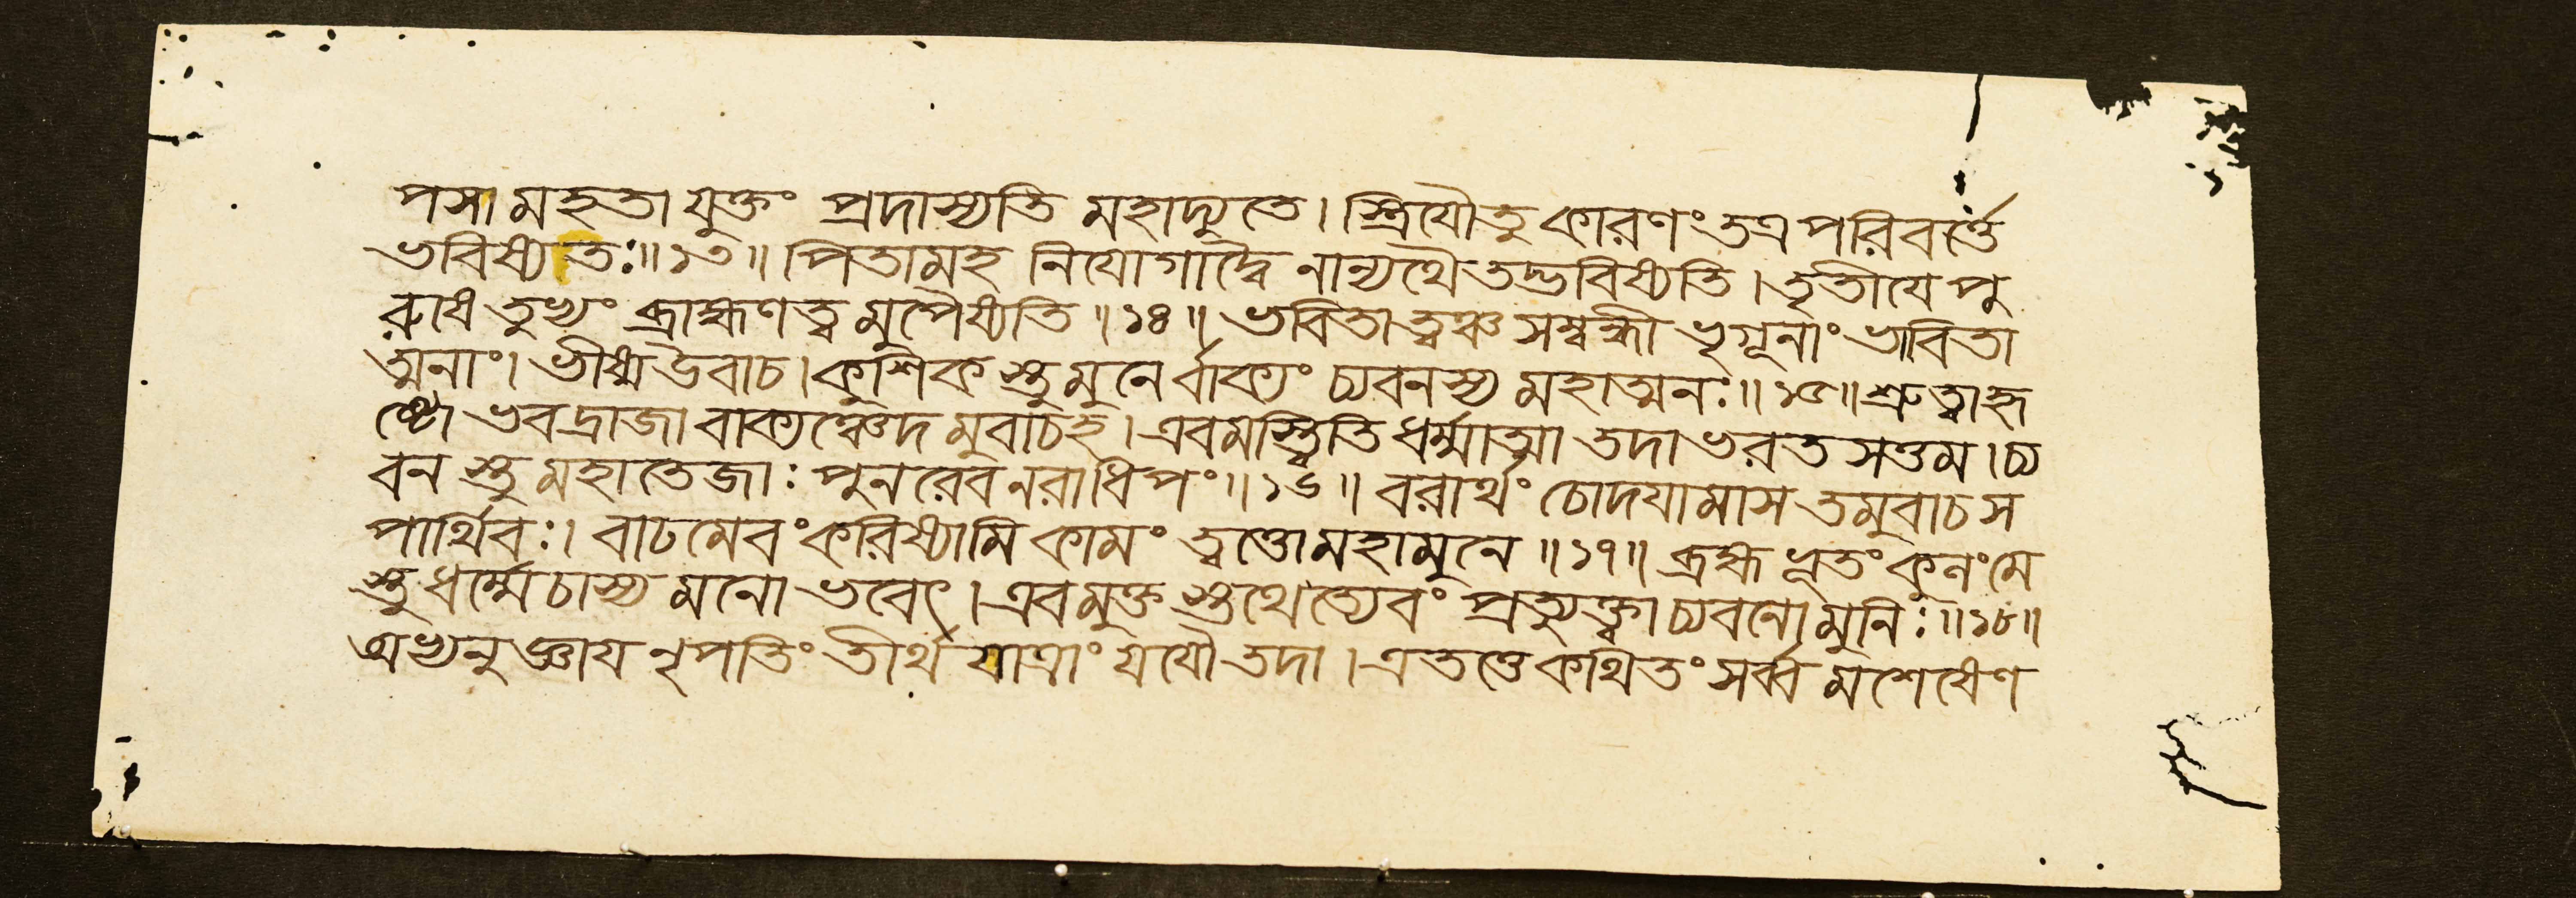 পসা মহতা যুক্তং প্রদাস্যতি মহাদ্যুতে। স্ত্রিযৌতু কারণং তত্র পরিবর্ত্তে
ভবিষ্যতঃ॥১৩॥ পিতামহ নিযোগাদ্বৈ নান্যথৈতদ্ভবিষ্যতি। তৃতীযে পু
রুষে তুভ্যং ব্রাহ্মণত্ব মুপৈষ্যতি॥১৪॥ ভবিতা ত্বঞ্চ সম্বন্ধী ভৃগূনাং ভাবিতা
ত্মনাং। ভীষ্মউবাচ। কুশিক স্তু মুনের্বাক্যং চ্যবনস্য মহাত্মনঃ॥১৫॥ শ্রুত্বাহৃ
ষ্টো ভবদ্রাজা বাক্যঞ্চেদ মুবাচহ। এবমস্ত্বিতি ধর্ম্মাত্মা তদা ভরত সত্তম। চ্য
বন স্তু মহাতেজাঃ পুনরেব নরাধিপং॥১৬॥ বরার্থং চোদযামাস তমুবাচ স
পার্থিবঃ। বাঢমেবং করিষ্যামি কামং ত্বত্তো মহামুনে॥১৭॥ ব্রহ্ম ভূতং কুলং মে
স্তু ধর্ম্মে চাস্য মনো ভবেৎ। এবমুক্ত স্তথেত্যেবং প্রত্যুক্ত্বা চ্যবনো মুনিঃ॥১৮॥
অভ্যনুজ্ঞায নৃপতিং তীর্থ যাত্রাং যযৌ তদা। এতত্তে কথিতং সর্ব্ব মশেষেণ